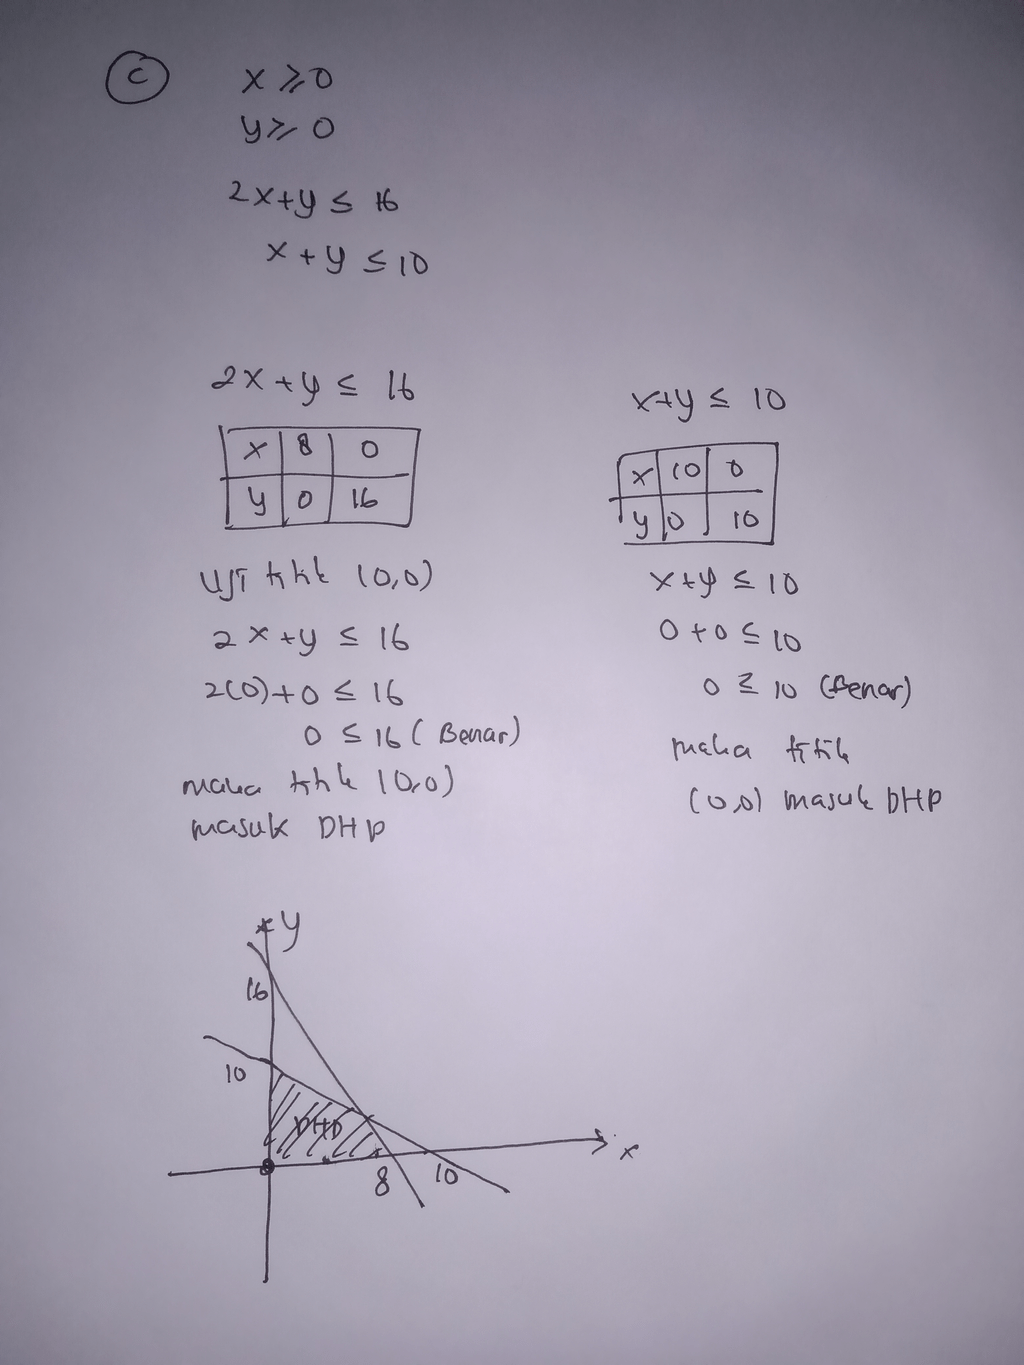 C
x ≥ 0
y ≥ 0
2x+y ≤ 16
x + y ≤ 10
2x + y ≤ 16
x 8 0
y 0 16
UJI titik (0,0)
2x + y ≤ 16
2(0)+0 ≤ 16
0 ≤ 16 (Benar)
maka titik (0,0)
masuk DHP
x+y ≤ 10
x 10 0
y 0 10
x + y ≤ 10
0 + 0 ≤ 10
0 ≤ 10 (Benar)
maka titik
(0,0) masuk DHP
y
16
10
DHP
8
10
x